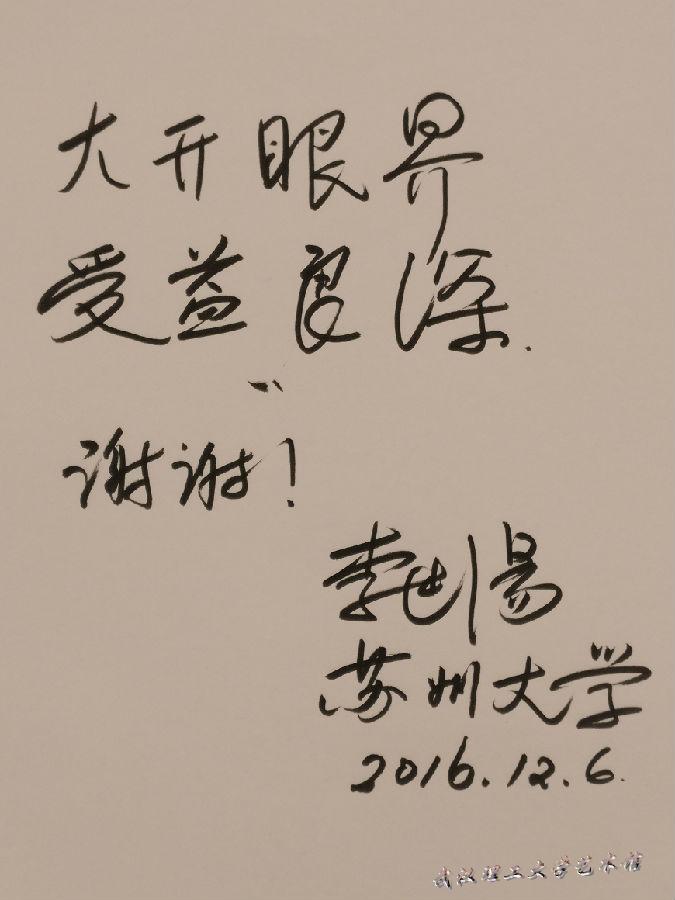 大开眼界
受益良深.
谢谢!
李
苏州大学
2016.12.6.
武汉理工大学艺术馆